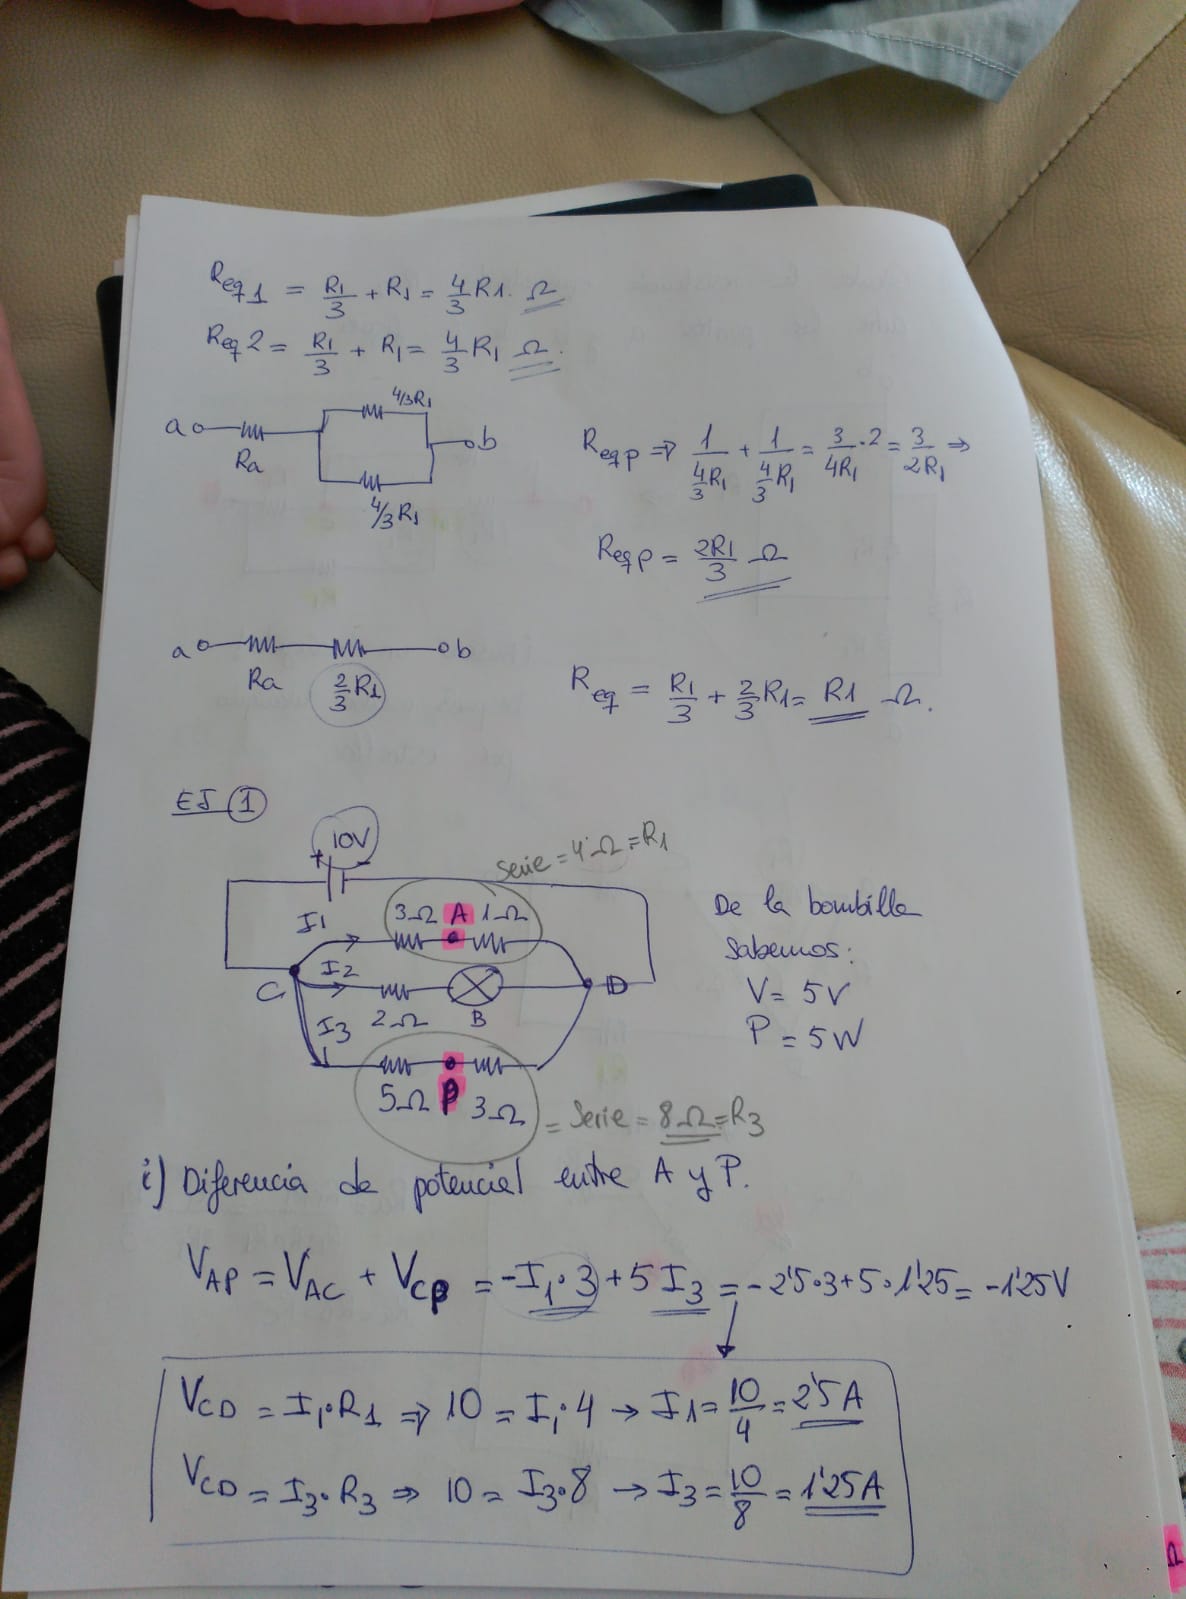 Req1 = R1/3 + R1 = 4/3 R1. Ω
Req2 = R1/3 + R1 = 4/3 R1 Ω.
4/3R1
a b
Ra
4/3 R1
Reqp ⇒ 1/(4/3 R1) + 1/(4/3 R1) = 3/4R1 · 2 = 3/2R1 ⇒
Reqp = 2R1/3 Ω
a b
Ra 2/3 R1
Req = R1/3 + 2/3 R1 = R1 Ω.
EJ 1
10V
+ -
Serie = 4Ω = R1
I1 3Ω A 1Ω
I2
C D
2Ω B
I3
5Ω P 3Ω
= Serie = 8Ω = R3
De la bombilla
sabemos:
V = 5V
P = 5W
i) Diferencia de potencial entre A y P.
VAP = VAC + VCP = -I1·3 + 5 I3 = -2'5·3 + 5·1'25 = -1'25V
VCD = I1·R1 ⇒ 10 = I1·4 → I1 = 10/4 = 2'5A
VCD = I3·R3 ⇒ 10 = I3·8 → I3 = 10/8 = 1'25A
Ω